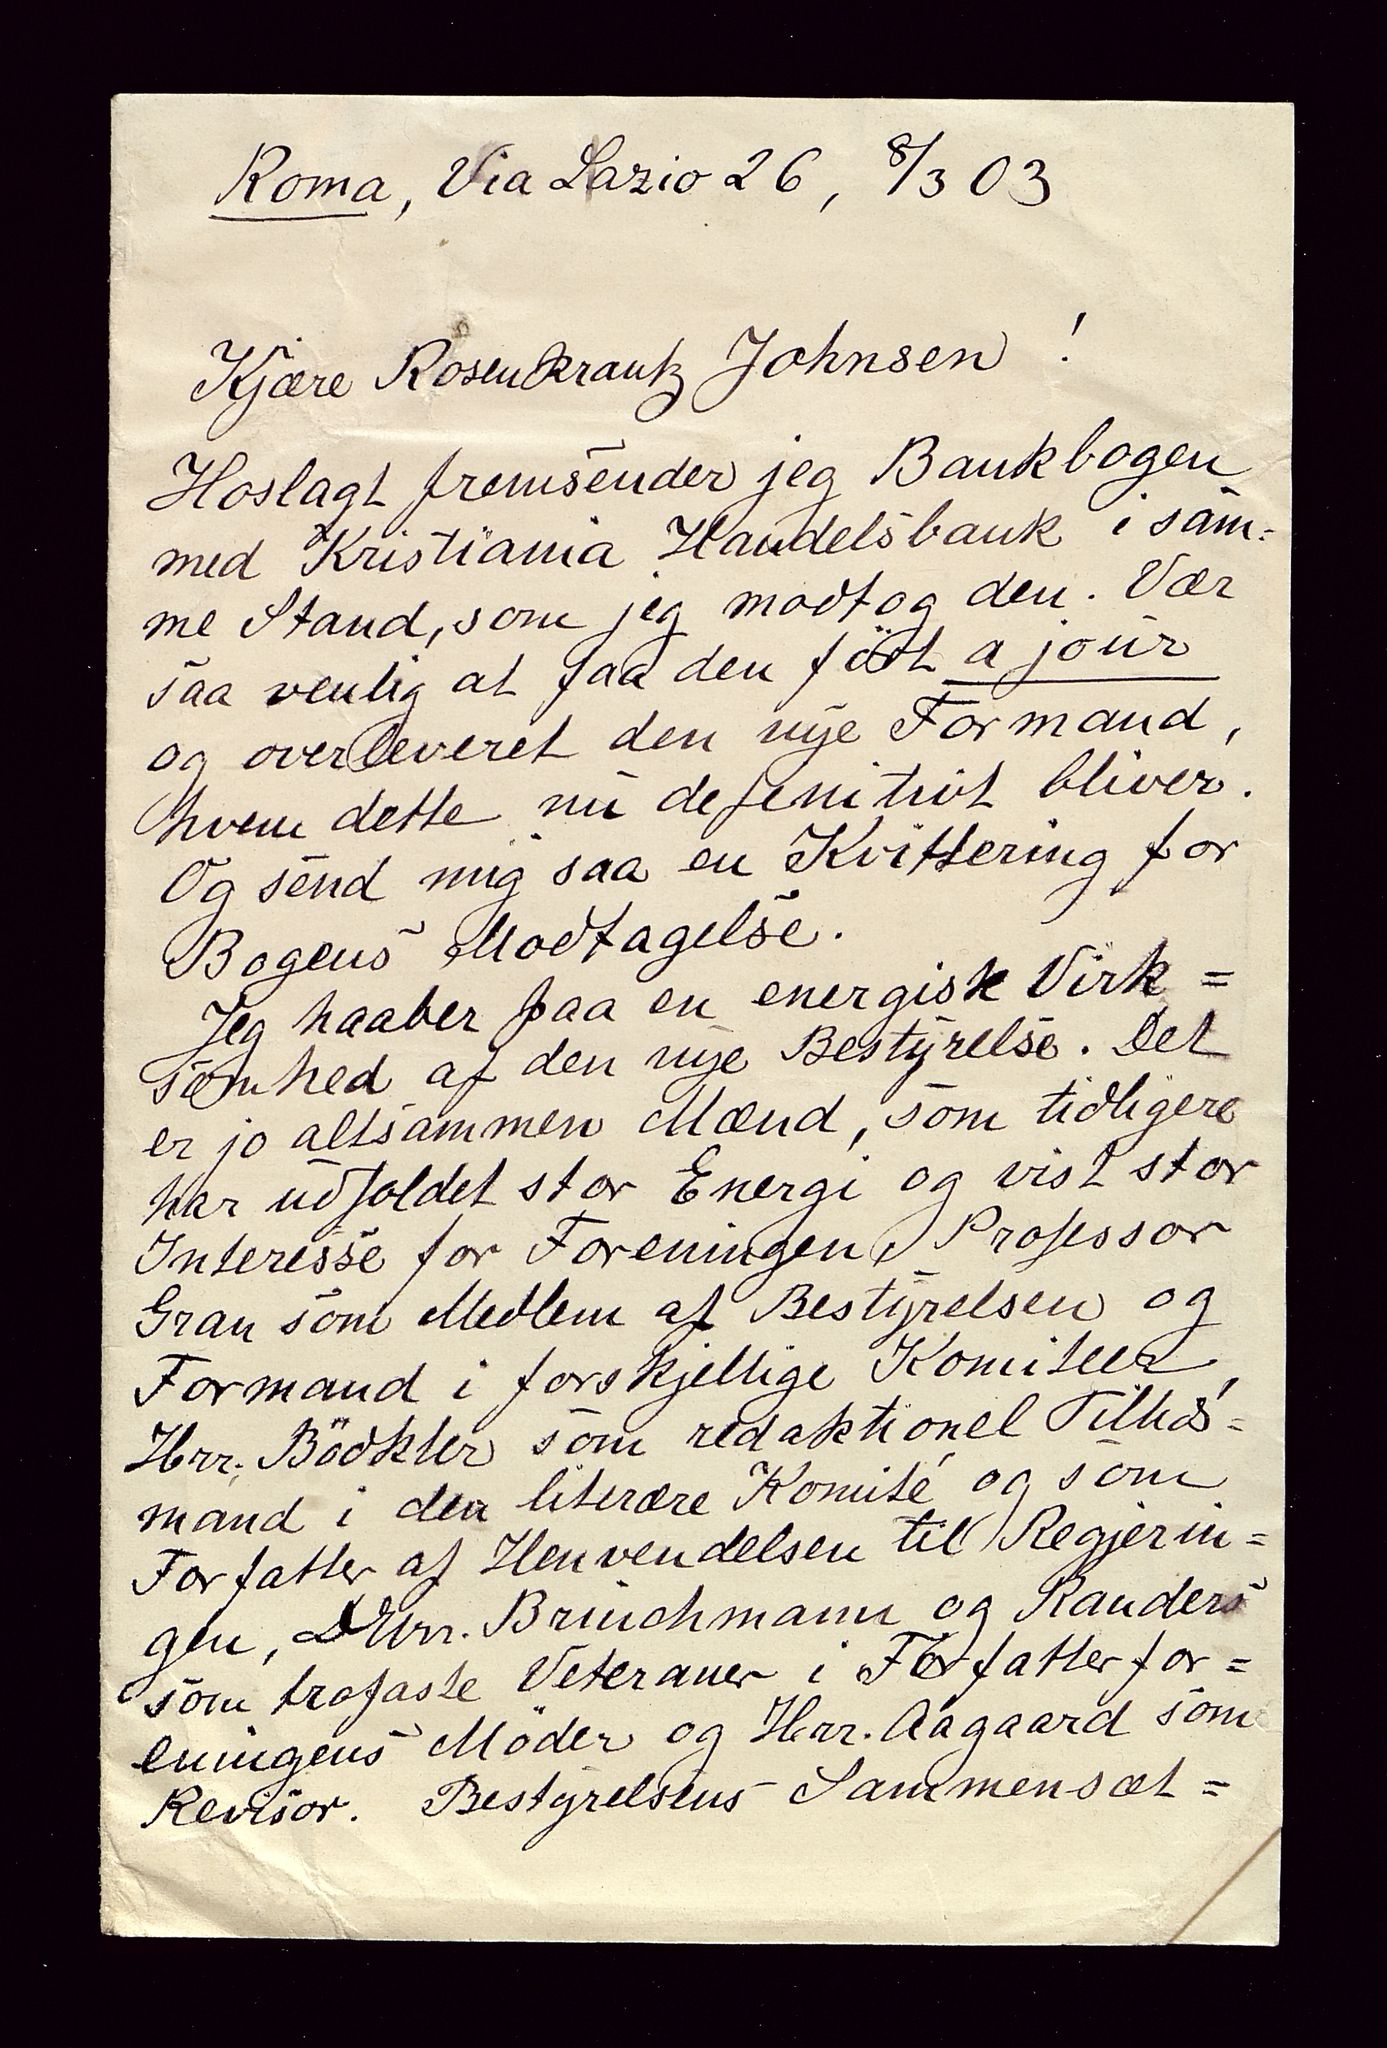 Roma, Via Lazio 26, 8/3 03
Kjære Rosenkrantz Johnsen!
Hoslagt fremsender jeg Bankbogen
med Kristiania Handelsbank i sam=
me Stand, som jeg modtog den. Vær
saa venlig at faa den ført a jour
og overleveret den nye Formand,
hvem dette nu defenitivt bliver.
Og send mig saa en Kvittering for
Bogens Modtagelse.
Jeg haaber paa en energisk Virk=
somhed af den nye Bestyrelse. Det
er jo altsammen Mænd, som tidligere
har udfoldet stor Energi og vist stor
Interesse for Foreningen, Professor
Gran som Medlem af Bestyrelsen og
Formand i forskjellige Komiteer,
Hrr. Bödkter som redaktionel Tillids=
mand i den literære Komité og som
Forfatter af Henvendelsen til Regjerin=
gen, DHrr. Brinchmann og Randers
som trofaste Veteraner i Forfatterfor=
eningens Möder og Hrr. Aagaard som
Revisor. Bestyrelsens Sammensæt=